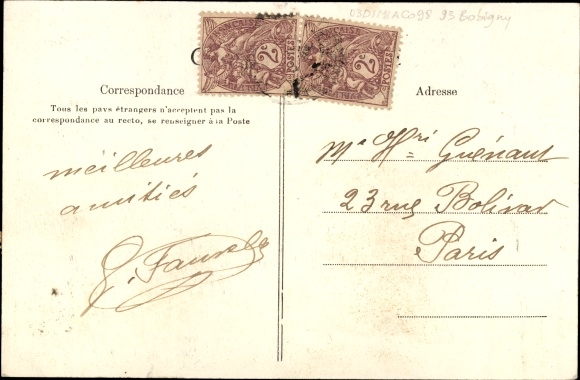 93 Bobigny
2c
POSTES
2c
POSTES
Correspondance
Tous les pays étrangers n'acceptent pas la
correspondance au recto, se renseigner à la Poste
meilleures
amitiés
Adresse
Mr Hri Guénant
23 rue Bolivar
Paris